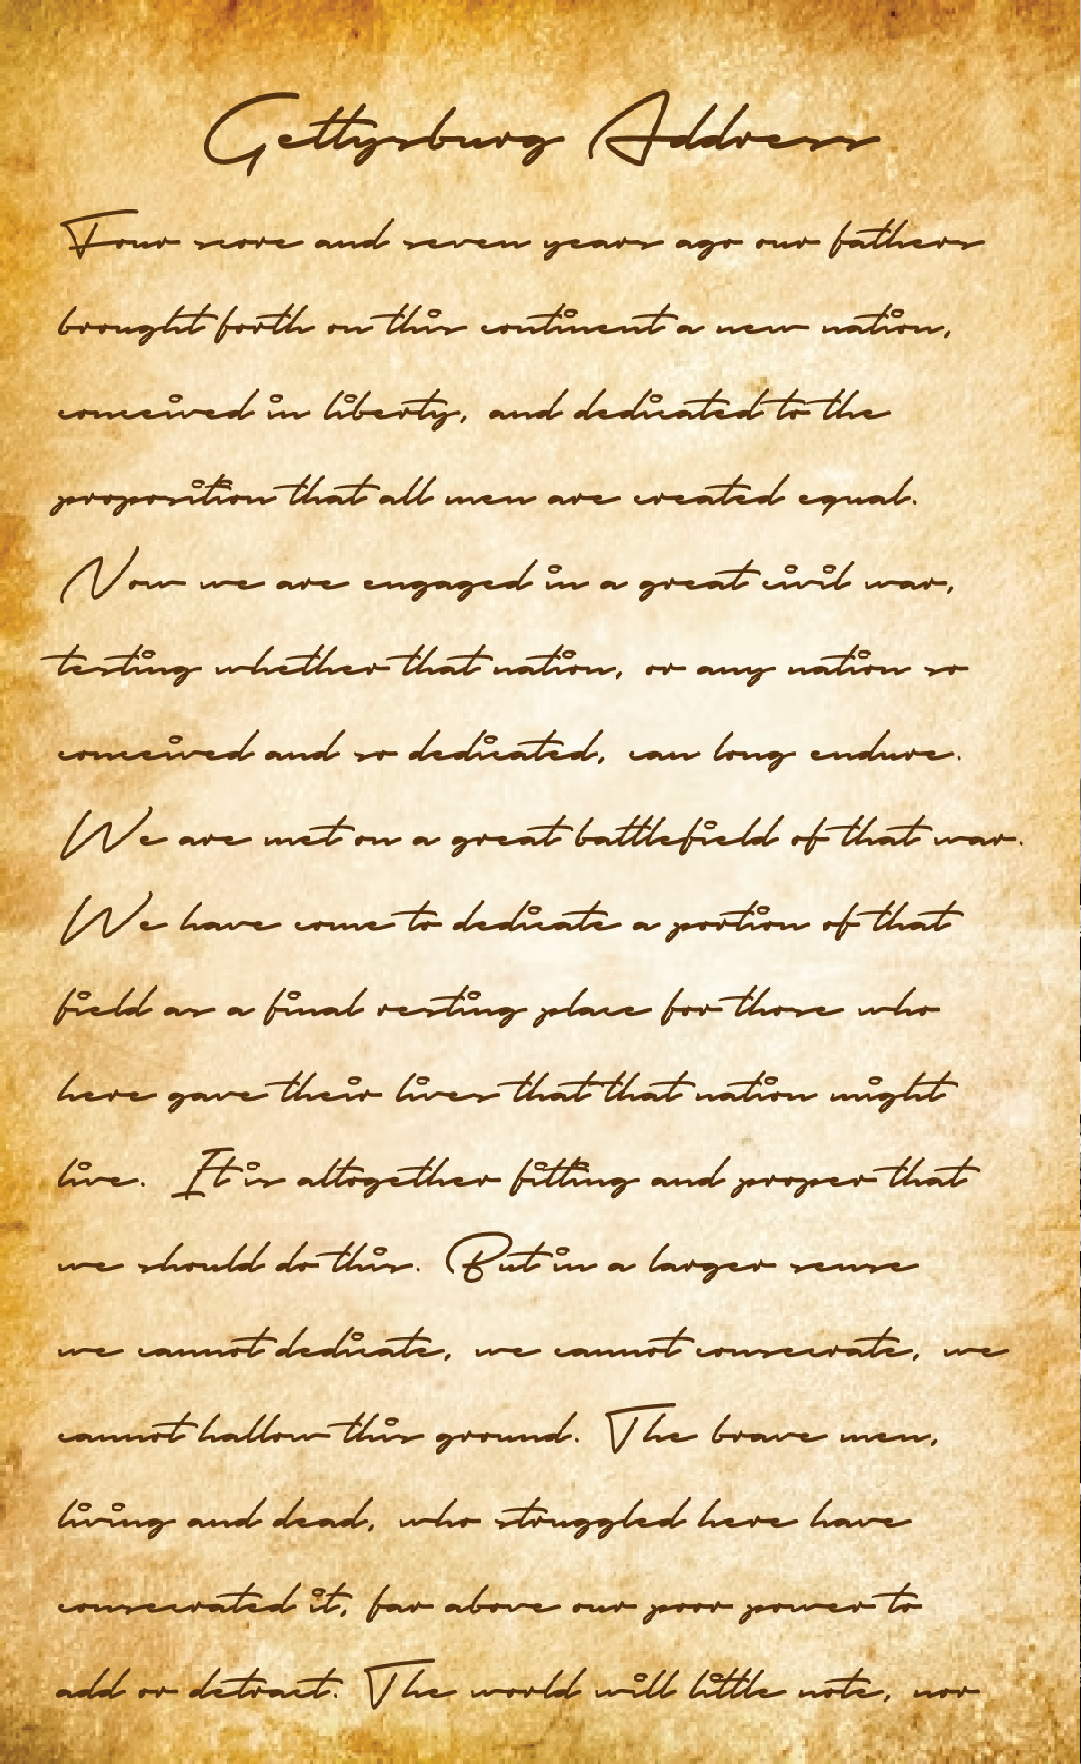 Gettysburg Address
Four score and seven years ago our fathers
brought forth on this continent a new nation,
conceived in liberty, and dedicated to the
proposition that all men are created equal.
Now we are engaged in a great civil war,
testing whether that nation, or any nation so
conceived and so dedicated, can long endure.
We are met on a great battlefield of that war.
We have come to dedicate a portion of that
field as a final resting place for those who
here gave their lives that that nation might
live. It is altogether fitting and proper that
we should do this. But in a larger sense
we cannot dedicate, we cannot consecrate, we
cannot hallow this ground. The brave men,
living and dead, who struggled here have
consecrated it, far above our poor power to
add or detract. The world will little note, nor